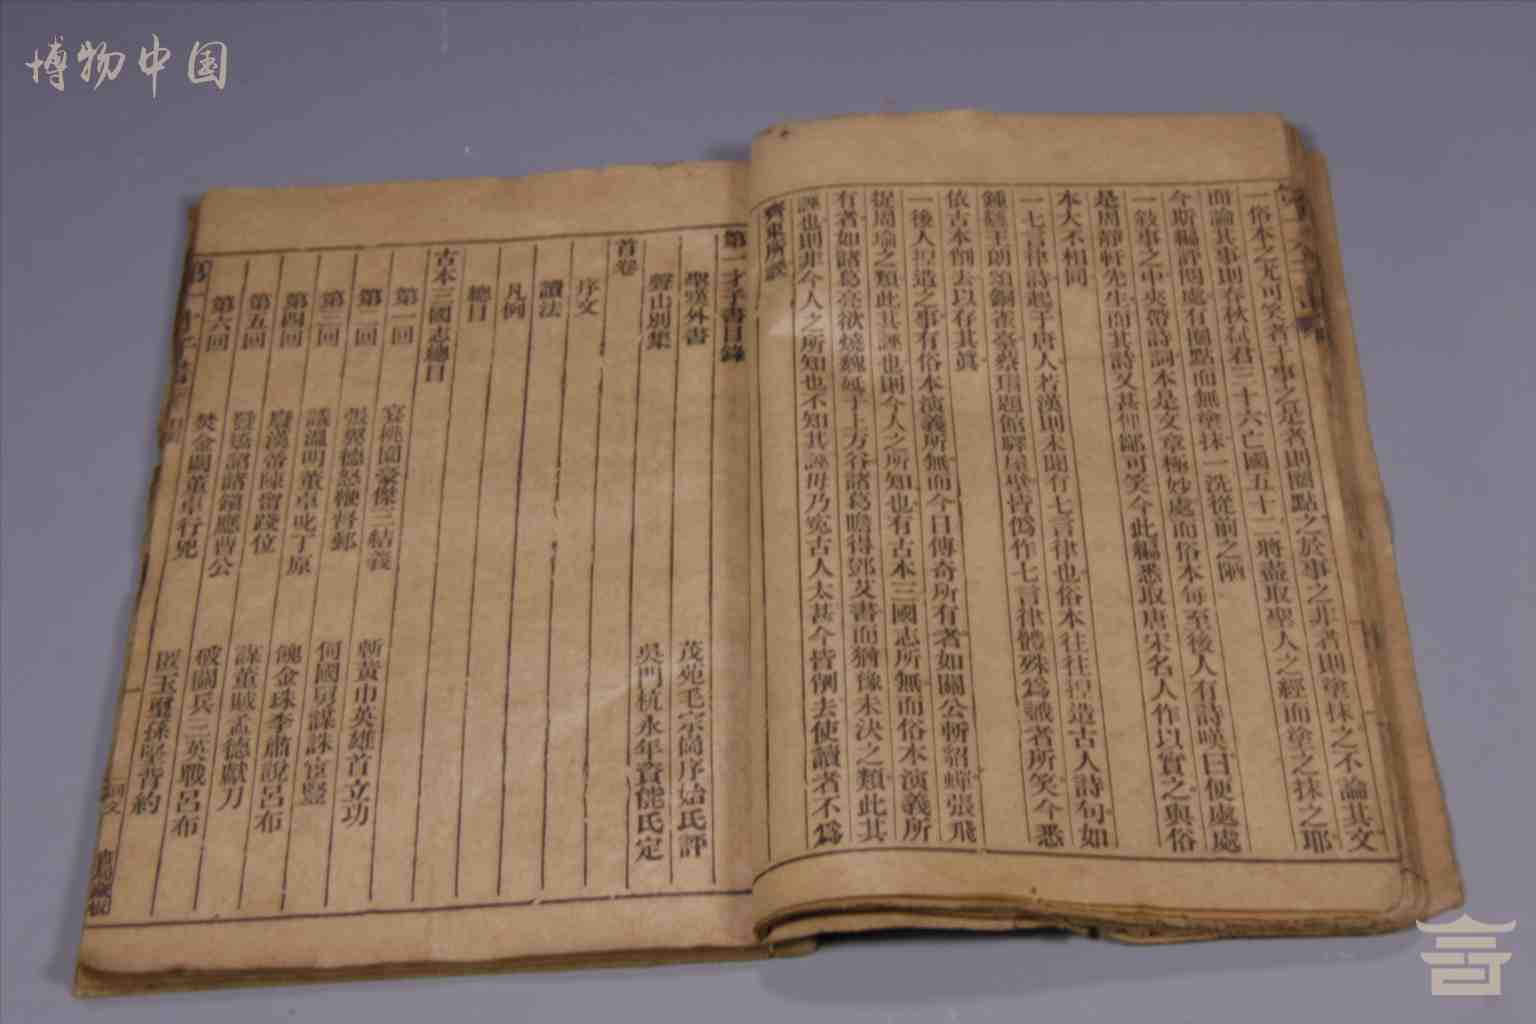 博物中国
一俗本之尤可笑者于事之是者則圈點之於事之非者則塗抹之不論其文
而論其事則春秋弒君三十六亡國五十二將盡取聖人之經而塗之抹之耶
今斯編評閱處有圈點而無塗抹一洗從前之陋
一敍事之中夾帶詩詞本是文章極妙處而俗本每至後人有詩嘆曰便處處
是周靜軒先生而其詩又甚俚鄙可笑今此編悉取唐宋名人作以實之與俗
本大不相同
一七言律詩起于唐人若漢則未聞有七言律也俗本往往捏造古人詩句如
鍾繇王朗頌銅雀臺蔡瑁題館驛屋壁皆僞作七言律體殊爲識者所笑今悉
依古本削去以存其眞
一後人捏造之事有俗本演義所無而今日傳奇所有者如關公斬貂蟬張飛
捉周瑜之類此其誣也則今人之所知也有古本三國志所無而俗本演義所
有者如諸葛亮欲燒魏延于上方谷諸葛瞻得鄧艾書而猶豫未決之類此其
誣也則非今人之所知也不知其誣毋乃冤古人太甚今皆削去使讀者不爲
齊東所誤
第一才子書目錄
聖嘆外書 茂苑毛宗崗序始氏評
聲山別集 吳門杭永年資能氏定
首卷
序文
讀法
凡例
總目
古本三國志總目
第一回 宴桃園豪傑三結義 斬黃巾英雄首立功
第二回 張翼德怒鞭督郵 何國舅謀誅宦豎
第三回 議溫明董卓叱丁原 餽金珠李肅說呂布
第四回 廢漢帝陳留踐位 謀董賊孟德獻刀
第五回 發矯詔諸鎮應曹公 破關兵三英戰呂布
第六回 焚金闕董卓行兇 匿玉璽孫堅背約